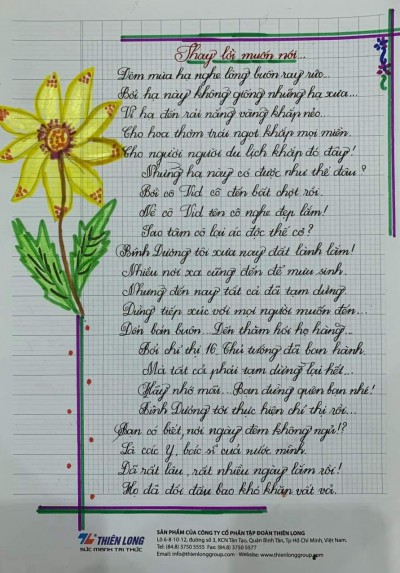 Thay lời muốn nói...
Đêm mùa hạ nghe lòng buồn ray rứt...
Bởi hạ này không giống những hạ xưa...
Vì hạ đến rải nắng vàng khắp nẻo...
Cho hoa thơm trái ngọt khắp mọi miền.
Cho người người du lịch khắp đó đây!
Nhưng hạ này có được như thế đâu?
Bởi cô Vid cô đến bất chợt rồi.
Mà cô Vid tên cô nghe đẹp lắm!
Sao tâm cô lại ác độc thế cô?
Bình Dương tôi xưa nay đất lành lắm!
Nhiều nơi xa cũng đến để mưu sinh.
Nhưng đến nay tất cả đã tạm dừng.
Dừng tiếp xúc với mọi người muốn đến...
Đến bán buôn... Đến thăm hỏi họ hàng...
Bởi chỉ thị 16 Thủ tướng đã ban hành.
Mà tất cả phải tạm dừng lại hết...
Hãy nhớ mãi... Bạn đừng quên bạn nhé!
Bình Dương tôi thực hiện chỉ thị rồi...
Bạn có biết, nơi ngày đêm không ngủ!?
Là các Y, bác sĩ của nước mình.
Đã rất lâu, rất nhiều ngày lắm rồi!
Họ đã đối đầu bao khó khăn vất vả.
THIÊN LONG
SỨC MẠNH TRI THỨC
SẢN PHẨM CỦA CÔNG TY CỔ PHẦN TẬP ĐOÀN THIÊN LONG
Lô 6-8-10-12, đường số 3, KCN Tân Tạo, Quận Bình Tân, Tp Hồ Chí Minh, Việt Nam.
Tel: (84.8) 3750 5555 Fax: (84.8) 3750 5577
Email: info@thienlonggroup.com Website: www.thienlonggroup.com